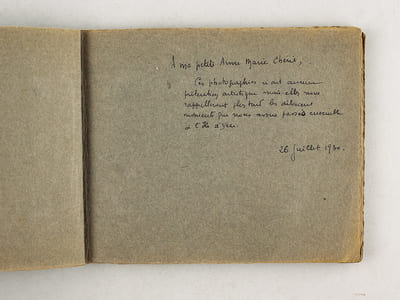 À ma petite Anne Marie Chérie,
Ces photographies n'ont aucune
prétention artistique mais elles nous
rappelleront plus tard les délicieux
moments que nous avons passés ensemble
à l'Ile d'Yeu.
26 Juillet 1930.